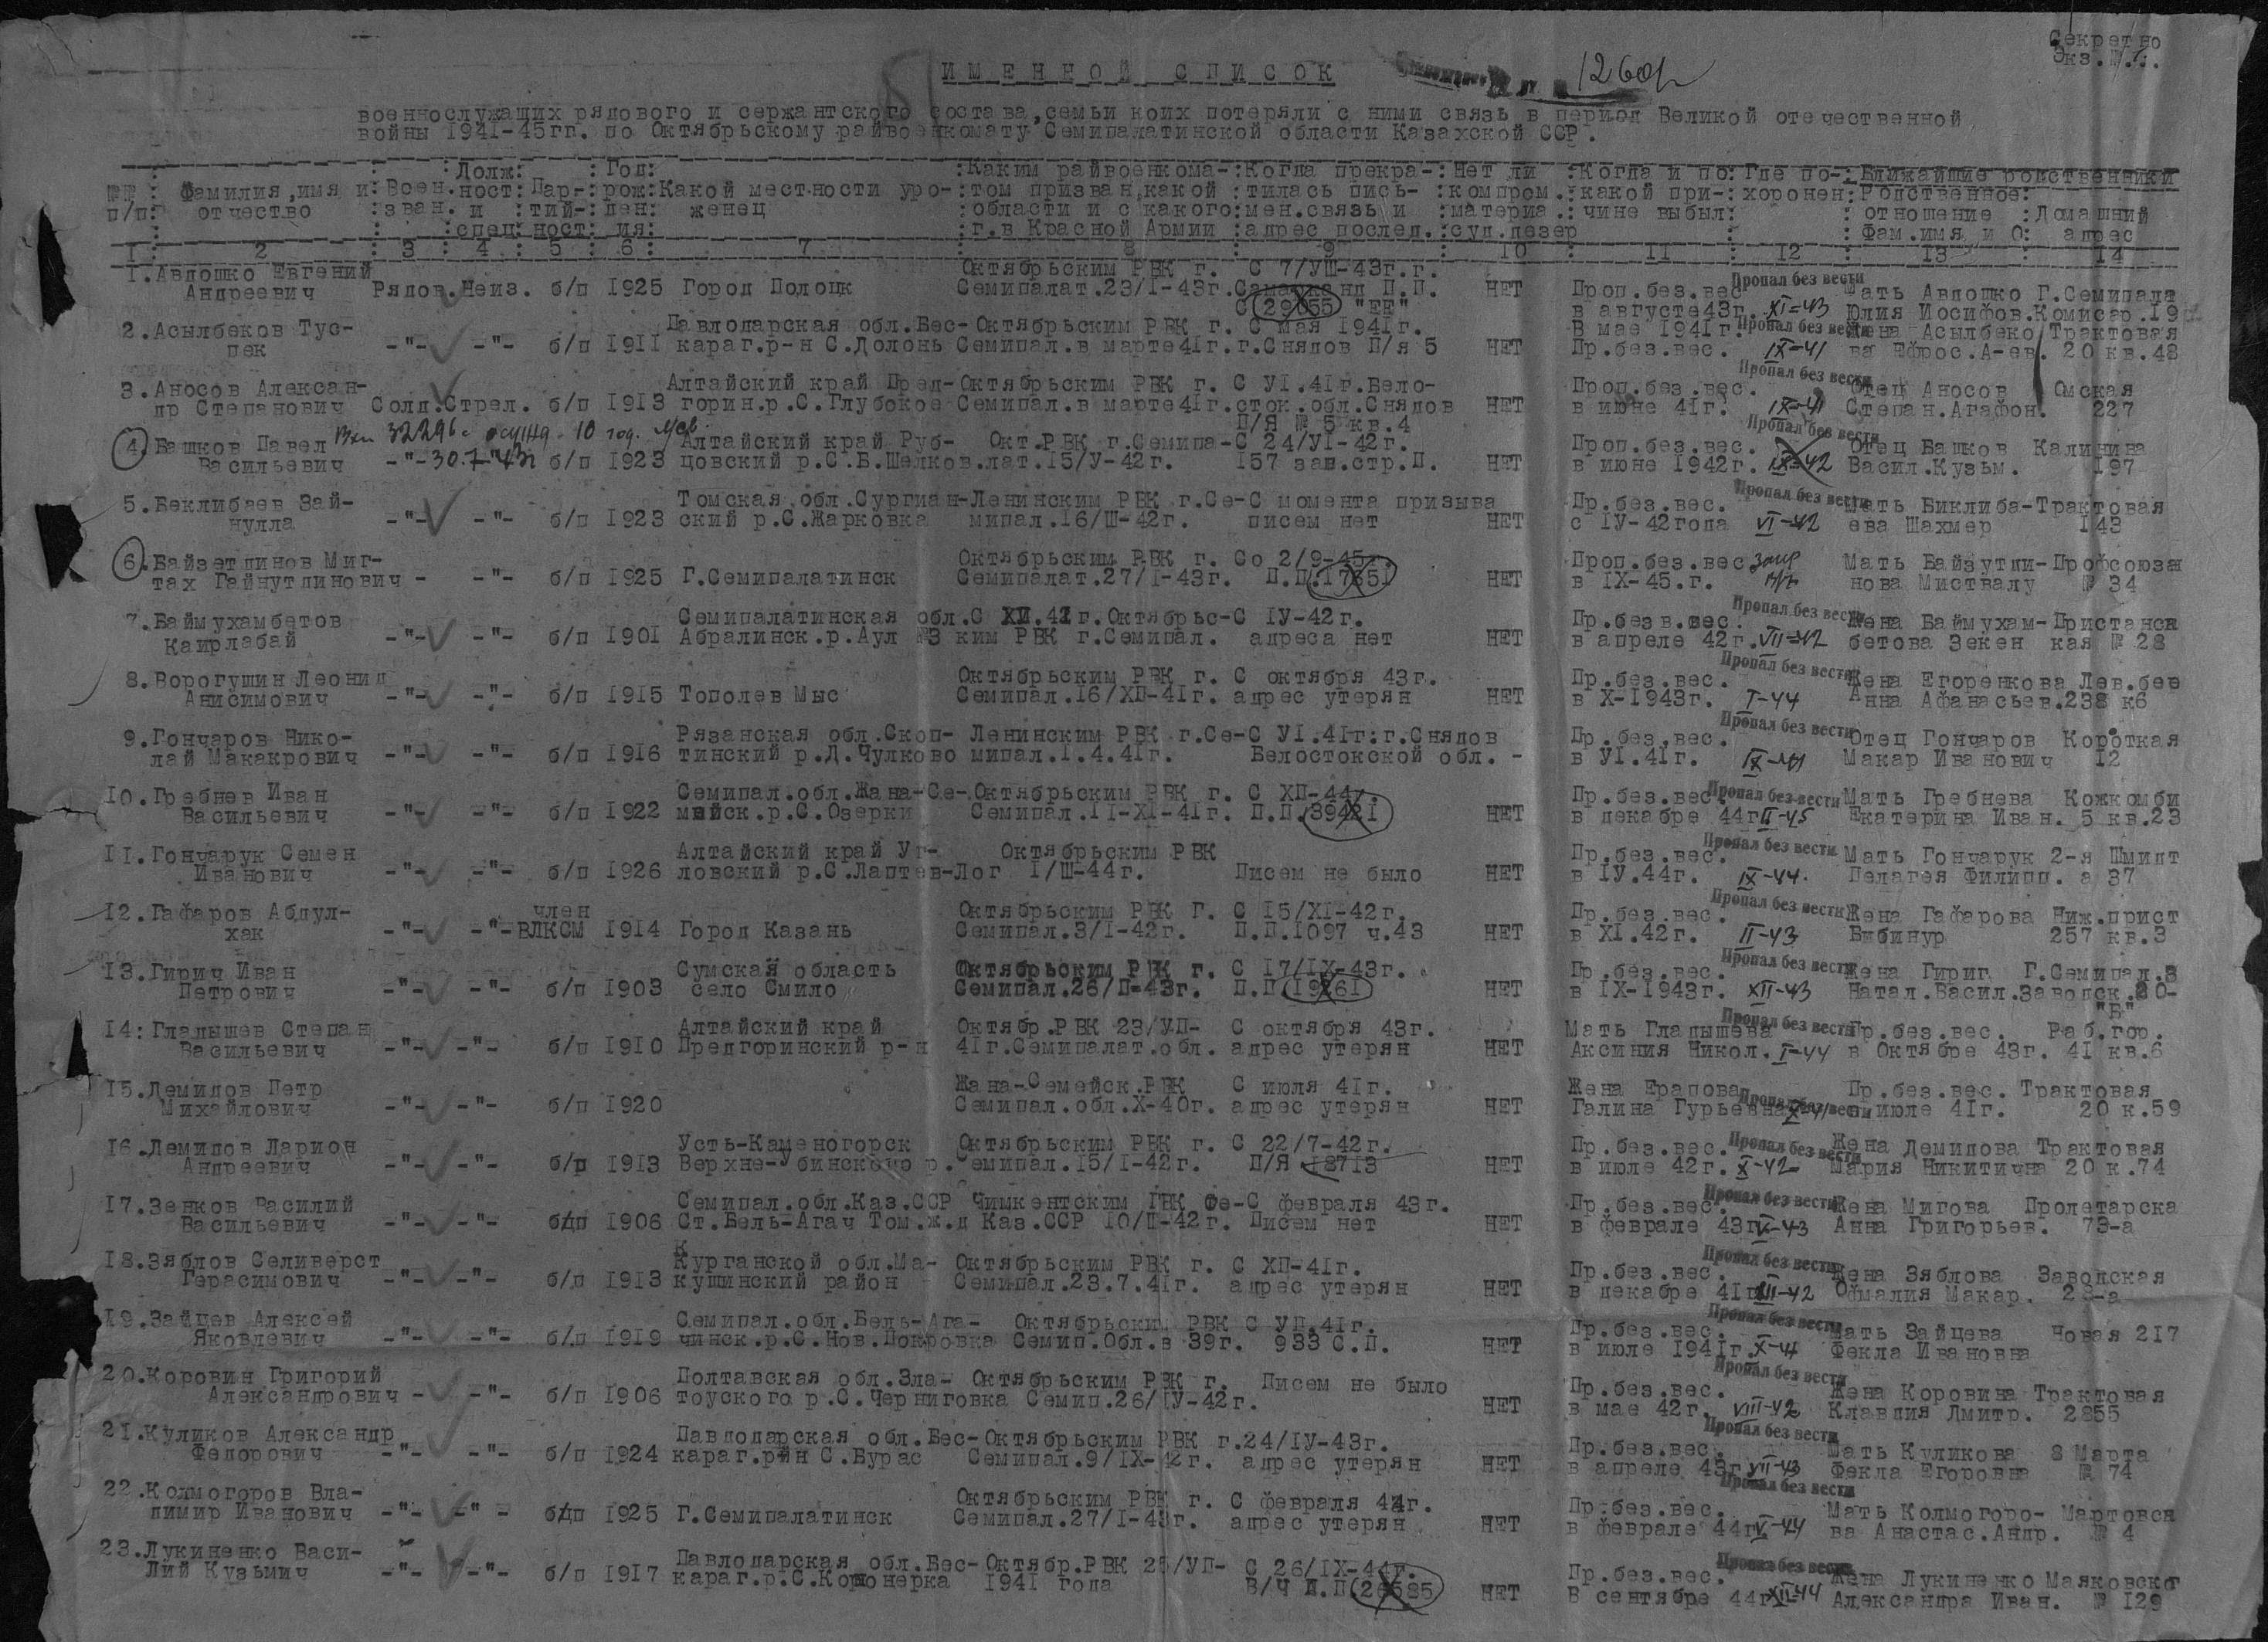 Секретно
Экз.№1.
ИМЕННОЙ СПИСОК
1260р
военнослужащих рядового и сержантского состава,семьи коих потеряли с ними связь в период Великой отечественной
войны 1941-45гг. по Октябрьскому райвоенкомату Семипалатинской области Казахской ССР.
Долж: Год: Каким райвоенкома-:Когда прекра-:Нет ли :Когда и по:Где по-:Ближайшие родственники
№№ Фамилия,имя и:Воен.ност:Пар-:рож:Какой местности уро-:том призван,какой :тилась пись- :компром.:какой при-:хоронен:Родственное:
п/п: отчество :зван. и :тий-:ден: женец :области и с какого:мен.связь и :материа.:чине выбыл: :отношение :Домашний
:спец:ност: ия: :г.в Красной Армии :адрес послед.:суд.дезер :Фам.имя и О: адрес
1: 2 : 3 : 4 : 5 : 6: 7 : 8 : 9 : 10 : 11 : 12 : 13 : 14
1.Авдошко Евгений Октябрьским РВК г. С 7/УШ-43г.г. Пропал без вести
Андреевич Рядов.Неиз. б/п 1925 Город Полоцк Семипалат.23/I-43г.Самарканд П.П. НЕТ Проп.без.вес Мать Авдошко Г.Семипала
С 29055 "ЕЕ" в августе43г. XI-43 Юлия Иосифов.Комисар.19
2.Асылбеков Тус- Павлодарская обл.Бес-Октябрьским РВК г. С мая 1941г. В мае 1941г. Пропал без вести Жена Асылбеко Трактовая
пек -"- -"- б/п 1911 караг.р-н С.Долонь Семипал.в марте41г.г.Снядов П/я 5 НЕТ Пр.без.вес. IX-41 ва Ефрос.А-ев. 20 кв.48
Пропал без вести
3.Аносов Алексан- Алтайский край Пред-Октябрьским РВК г. С У1.41г.Бело- Проп.без.вес. Отец Аносов Омская
др Степанович Солд.Стрел. б/п 1913 горин.р.С.Глубокое Семипал.в марте41г.сток.обл.Снядов НЕТ в июне 41г. IX-41 Степан.Агафон. 227
П/Я № 5 кв.4 Пропал без вести
Вхн 32296с осужд. 10 год.
4.Башков Павел Алтайский край Руб- Окт.РВК г.Семипа-С 24/У1-42г. Проп.без.вес. Отец Башков Калинина
Васильевич -"-30.7-43г б/п 1923 цовский р.С.Б.Шелков.лат.15/У-42г. 157 зап.стр.П. НЕТ в июне 1942г. IX-42 Васил.Кузьм. 197
5.Беклибаев Зай- Томская обл.Сургман-Ленинским РВК г.Се-С момента призыва Пр.без.вес. Пропал без вести Мать Биклиба-Трактовая
нулла -"- -"- б/п 1923 ский р.С.Жарковка мипал.16/Ш-42г. писем нет НЕТ с IУ-42года VI-42 ева Шахмер 143
6.Байзетдинов Миг- Октябрьским РВК г. Со 2/9-45г. Проп.без.вес Мать Байзутди-Профсоюзн
тах Гайнутдинович - -"- б/п 1925 Г.Семипалатинск Семипалат.27/I-43г. П.П.17351 НЕТ в IX-45.г. нова Миствалу № 34
7.Баймухамбетов Семипалатинская обл.С ХП.41г.Октябрьс-С IУ-42г. Пр.без в.вес. Пропал без вести Жена Баймухам-Пристанск
Каирлабай -"- -"- б/п 1901 Абралинск.р.Аул №3 ким РВК г.Семипал. адреса нет НЕТ в апреле 42г. VII-42 бетова Зекен кая № 28
8.Ворогушин Леонид Октябрьским РВК г. С октября 43г. Пр.без.вес. Пропал без вести Жена Егоренкова Лев.бее
Анисимович -"- -"- б/п 1915 Тополев Мыс Семипал.16/ХП-41г. адрес утерян НЕТ в Х-1943г. I-44 Анна Афанасьев.238 к6
9.Гончаров Нико- Рязанская обл.Скоп- Ленинским РВК г.Се-С У1.41г:г.Снядов Пр.без.вес. Пропал без вести Отец Гончаров Короткая
лай Макакрович -"- -"- б/п 1916 тинский р.Д.Чулково мипал.1.4.41г. Белостокской обл. - в У1.41г. IX-41 Макар Иванович 12
10.Гребнев Иван Семипал.обл.Жана-Се-.Октябрьским РВК г. С ХП-44г. Пр.без.вес. Пропал без вести Мать Гребнева Кожкомби
Васильевич -"- -"- б/п 1922 мейск.р.С.Озерки Семипал.11-XI-41г. П.П.39421 НЕТ в декабре 44г II-45 Екатерина Иван. 5 кв.23
11.Гончарук Семен Алтайский край Уг- Октябрьским РВК Пр.без.вес. Пропал без вести Мать Гончарук 2-я Шмидт
Иванович -"- -"- б/п 1926 ловский р.С.Лаптев-Лог 1/Ш-44г. Писем не было НЕТ в IУ.44г. IX-44. Пелагея Филипп. а 37
12.Гафаров Абдул- член Октябрьским РВК Г. С 15/XI-42г. Пр.без.вес. Пропал без вести Жена Гафарова Ниж.прист
хак -"- -"-ВЛКСМ 1914 Город Казань Семипал.3/I-42г. П.П.1097 ч.43 НЕТ в XI.42г. II-43 Бибинур 257 кв.3
13.Гирич Иван Сумская область Октябрьским РВК г. С 17/IX-43г. Пр.без.вес. Пропал без вести Жена Гириг Г.Семипал.8
Петрович -"- -"- б/п 1903 село Смило Семипал.26/П-43г. П.П.19261 НЕТ в IX-1943г. XII-43 Натал.Васил.Заводск.20-
"Б"
14:Гладышев Степан Алтайский край Октябр.РВК 23/УП- С октября 43г. Мать Гладышева Пропал без вести Пр.без.вес. Раб.гор.
Васильевич -"- -"- б/п 1910 Предгоринский р-н 41г.Семипалат.обл. адрес утерян НЕТ Аксиния Никол. I-44 в Октябре 43г. 41 кв.6
15.Демидов Петр Жана-Семейск.РВК С июля 41г. Жена Ерапова Пр.без.вес. Трактовая
Михайлович -"- -"- б/п 1920 Семипал.обл.Х-40г. адрес утерян НЕТ Галина Гурьевна Пропал без вести в июле 41г. 20 к.59
16.Демидов Ларион Усть-Каменогорск Октябрьским РВК г. С 22/7-42г. Пр.без.вес. Пропал без вести Жена Демидова Трактовая
Андреевич -"- -"- б/п 1913 Верхне-Убинского р.Семипал.15/I-42г. П/Я 18713 НЕТ в июле 42г. X-42 Мария Никитична 20 к.74
17.Зенков Василий Семипал.обл.Каз.ССР Чимкентским ГВК Фе-С февраля 43г. Пр.без.вес. Пропал без вести Жена Мигова Пролетарска
Васильевич -"- -"- б/п 1906 Ст.Бель-Агач Том.ж.д Каз.ССР 10/П-42г. Писем нет НЕТ в феврале 43г V-43 Анна Григорьев. 73-а
18.Зяблов Селиверст Курганской обл.Ма- Октябрьским РВК г. С ХП-41г. Пр.без.вес. Пропал без вести Жена Зяблова Заводская
Герасимович -"- -"- б/п 1913 кушинский район Семипал.23.7.41г. адрес утерян НЕТ в декабре 41г III-42 Офмалия Макар. 28-а
19.Зайцев Алексей Семипал.обл.Бель-Ага- Октябрьским РВК С УП.41г. Пр.без.вес. Пропал без вести Мать Зайцева Новая 217
Яковлевич -"- -"- б/п 1919 чинск.р.С.Нов.Покровка Семип.Обл.в 39г. 933 С.П. НЕТ в июле 1941г. X-41 Фекла Ивановна
20.Коровин Григорий Полтавская обл.Зла- Октябрьским РВК г. Писем не было Пр.без.вес. Пропал без вести Жена Коровина Трактовая
Александрович - -"- б/п 1906 тоуского р.С.Черниговка Семип.26/IУ-42г. НЕТ в мае 42г. VIII-42 Клавдия Дмитр. 2855
21.Куликов Александр Павлодарская обл.Бес-Октябрьским РВК г.24/IУ-43г. Пр.без.вес. Пропал без вести Мать Куликова 8 Марта
Федорович -"- -"- б/п 1924 караг.р-н С.Бурас Семипал.9/IX-42г. адрес утерян НЕТ в апреле 43г VII-43 Фекла Егоровна № 74
22.Колмогоров Вла- Октябрьским РВК г. С февраля 44г. Пр.без.вес. Пропал без вести Мать Колмогоро- Мартовся
димир Иванович -"- -"- б/п 1925 Г.Семипалатинск Семипал.27/I-43г. адрес утерян НЕТ в феврале 44г V-44 ва Анастас.Андр. № 4
23.Лукиненко Васи- Павлодарская обл.Бес-Октябр.РВК 25/УП- С 26/IX-44г. Пр.без.вес. Пропал без вести Жена Лукиненко Маяковског
Лий Кузьмич -"- -"- б/п 1917 караг.р.С.Кононерка 1941 года В/Ч П.П 26585 НЕТ В сентябре 44г XII-44 Александра Иван. № 129